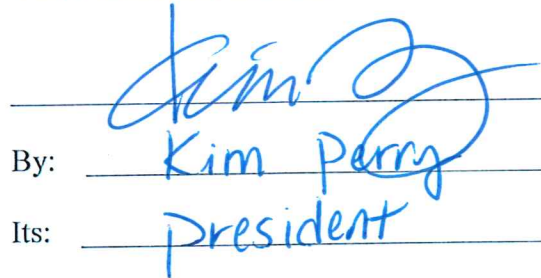 Kim
By: Kim Perry
Its: president